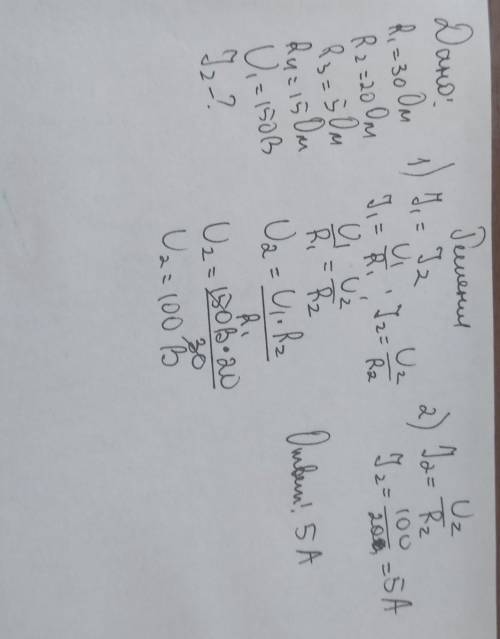 Дано:
R1 = 30 Ом
R2 = 20 Ом
R3 = 5 Ом
R4 = 15 Ом
U1 = 150 В
J2 - ?
Решения
1) J1 = J2
J1 = U1/R1, J2 = U2/R2
U1/R1 = U2/R2
U2 = U1 · R2/R1
U2 = 150В · 20/30
U2 = 100 В
2) J2 = U2/R2
J2 = 100/20 = 5 А
Ответ: 5 А